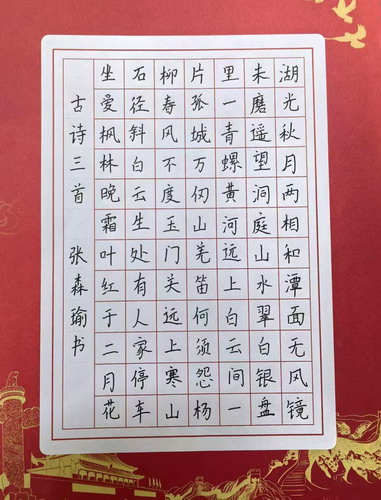 湖光秋月两相和潭面无风镜
未磨遥望洞庭山水翠白银盘
里一青螺黄河远上白云间一
片孤城万仞山羌笛何须怨杨
柳春风不度玉门关远上寒山
石径斜白云生处有人家停车
坐爱枫林晚霜叶红于二月花
古诗三首 张森瑜书